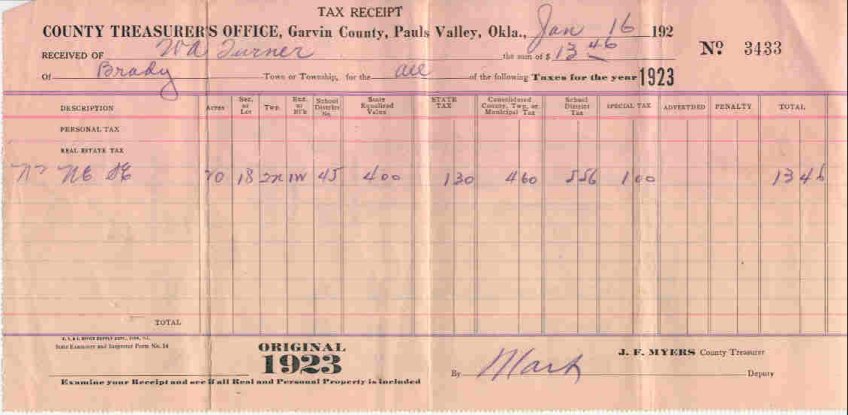 TAX RECEIPT
COUNTY TREASURER'S OFFICE, Garvin County, Pauls Valley, Okla., Jan 16 192
RECEIVED OF W A Turner the sum of $ 13 46 No 3433
Of Brady Town or Township, for the all of the following Taxes for the year 1923
DESCRIPTION Acres Sec. or Lot Twp. Rng. or Bl'k School District No. State Equalized Value STATE TAX Consolidated County, Twp. or Municipal Tax School District Tax SPECIAL TAX ADVERTISED PENALTY TOTAL
PERSONAL TAX
REAL ESTATE TAX
NE SE 18 2N 1W 45 400 130 460 556 1 00 13 46
TOTAL
State Examiner and Inspector Form No. 14
ORIGINAL
1923
J. F. MYERS County Treasurer
By Mark Deputy
Examine your Receipt and see if all Real and Personal Property is included